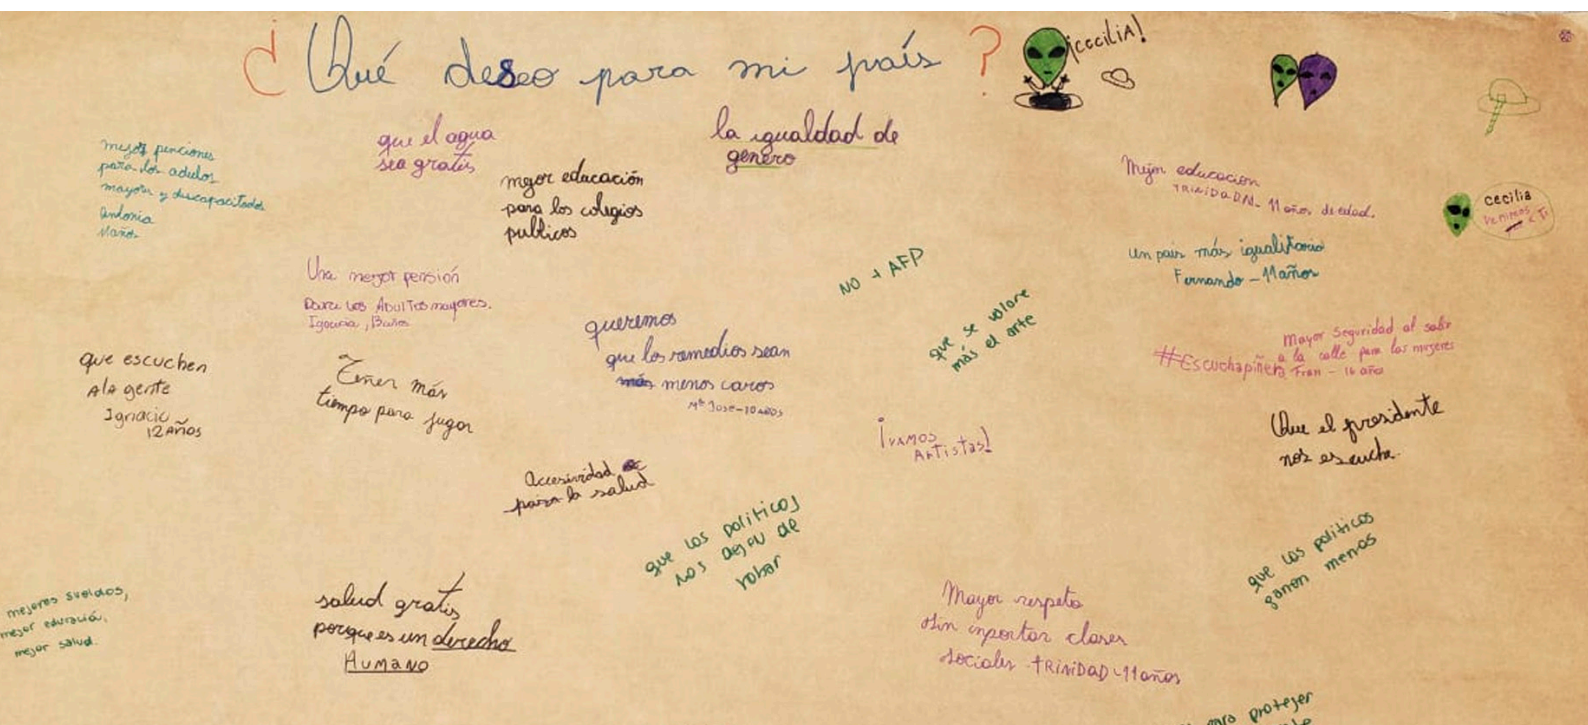 ¿Qué deseo para mi país?
¡CECILIA!
mejor penciones
para los adultos
mayores y discapacitados
Antonia
11 años
que el agua
sea gratis
mejor educación
para los colegios
publicos
la igualdad de
genero
Mejor educacion
TRINIDAD 11 años de edad.
cecilia
Venimos
x ti
un pais más igualitario
Fernando - 11 años
Una mejor pensión
para los Adultos mayores.
Ignacia, 13 años
NO + AFP
que se valore
más el arte
queremos
que los remedios sean
más menos caros
Mª José - 10 años
Mayor seguridad al salir
a la calle para las mujeres
#Escuchapiñera Fran - 16 años
que escuchen
A la gente
Ignacio
12 Años
Tener más
tiempo para jugar
¡VAMOS
Artistas!
Que el presidente
nos escuche.
Accesividad
para la salud
que los politicos
nos dejen de
robar
que los politicos
ganen menos
mejores sueldos,
mejor educación,
mejor salud.
salud gratis
porque es un derecho
Humano
Mayor respeto
sin inportar clases
sociales TRINIDAD - 11 años
para proteger